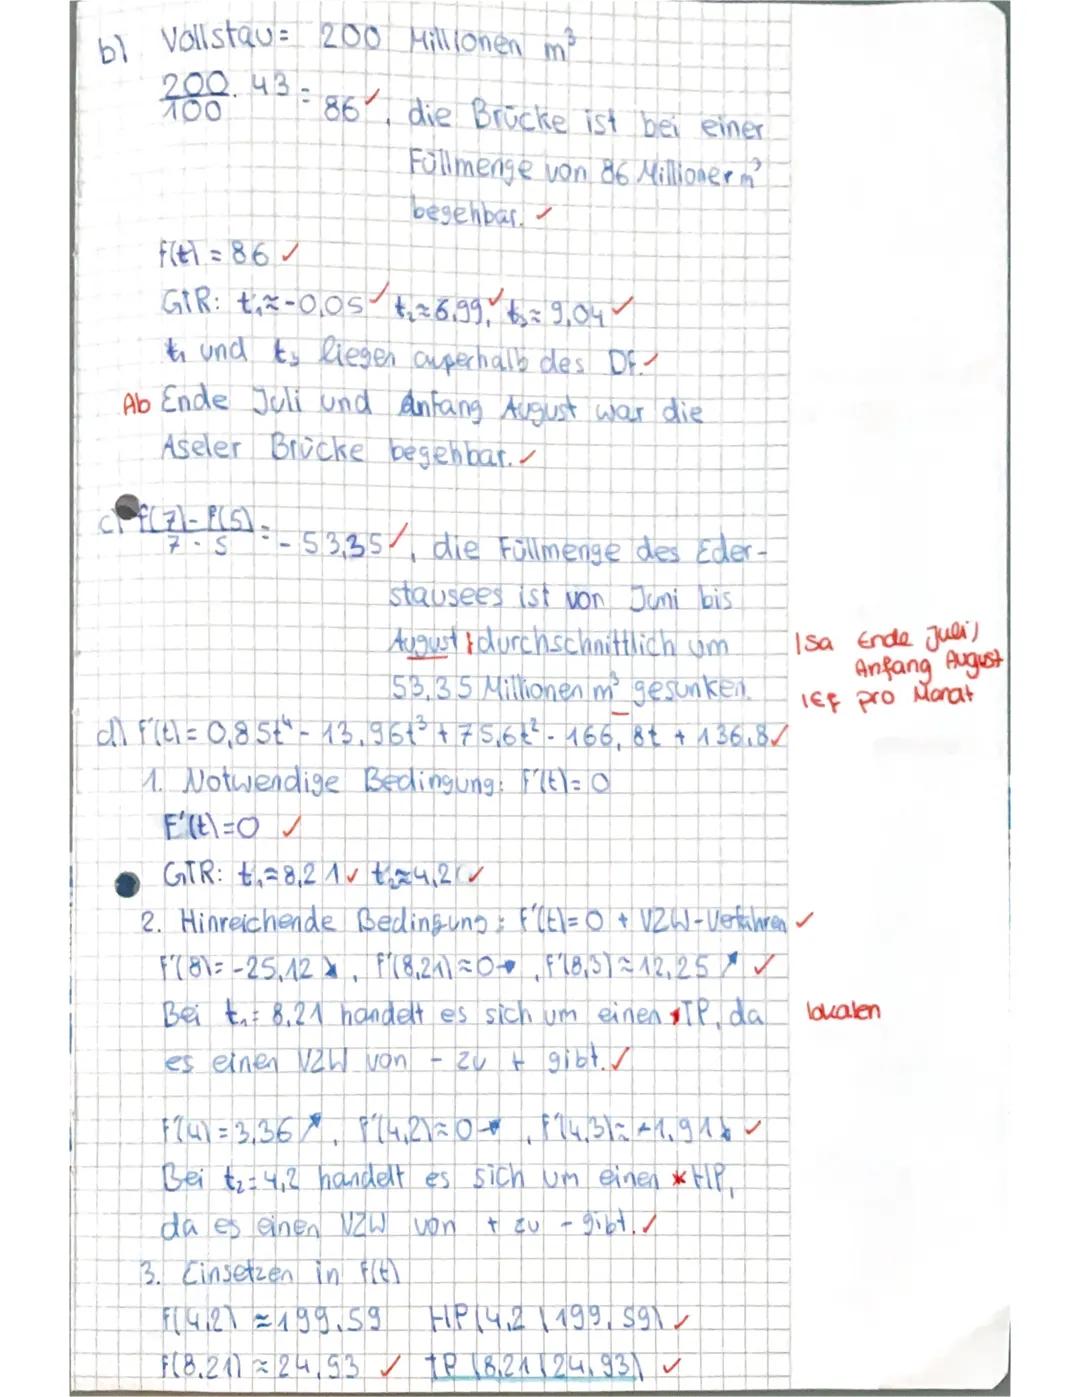 b) Vollstau= 200 Millionen m³
200/100 · 43 = 86 ✓, die Brücke ist bei einer
Füllmenge von 86 Millionen m³
begehbar. ✓
f(t) = 86 ✓
GTR: t₁≈-0,05 ✓ t₂≈6,99, ✓ t₃≈ 9,04 ✓
t₁ und t₃ liegen außerhalb des DF. ✓
Ab Ende Juli und Anfang August war die
Aseler Brücke begehbar. ✓
c) f(7)-f(5)/7-5 = -53,35 ✓, die Füllmenge des Eder-
stausees ist von Juni bis
August durchschnittlich um
ISa Ende Juli/
Anfang August
53,35 Millionen m³ gesunken.
IEf pro Monat
d) f'(t) = 0,85t⁴ - 13,96t³ + 75,6t² - 166,8t + 136,8 ✓
1. Notwendige Bedingung: f'(t)= 0
F'(t)=0 ✓
GTR: t₁≈8,21 ✓ t₂≈4,2 ✓
2. Hinreichende Bedingung: f'(t)=0 + VZW-Verfahren ✓
f'(8)= -25,12 ↘, f'(8,21)≈0→, f'(8,3)≈12,25 ↗ ✓
Bei t₁= 8,21 handelt es sich um einen TP, da
lokalen
es einen VZW von - zu + gibt. ✓
f'(4)=3,36 ↗, f'(4,2)≈0→, f'(4,3)≈-1,91 ↘ ✓
Bei t₂=4,2 handelt es sich um einen * HP,
da es einen VZW von + zu - gibt. ✓
3. Einsetzen in f(t)
f(4,2) ≈199,59 HP(4,2 | 199,59) ✓
f(8,21) ≈ 24,93 ✓ TP (8,21 | 24,93) ✓